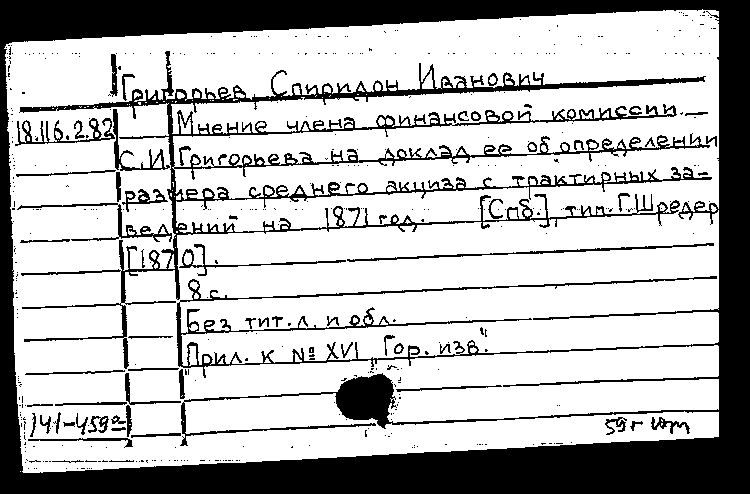 Григорьев, Спиридон Иванович
18.116.2.82 Мнение члена финансовой комиссии
С.И. Григорьева на доклад ее об определении
размера среднего акциза с трактирных за-
ведений на 1871 год. [Спб.], тип. Г. Шредер
[1870].
8 с.
Без тит. л. и обл.
Прил. к № XVI „Гор. изв."
141-459а
59г